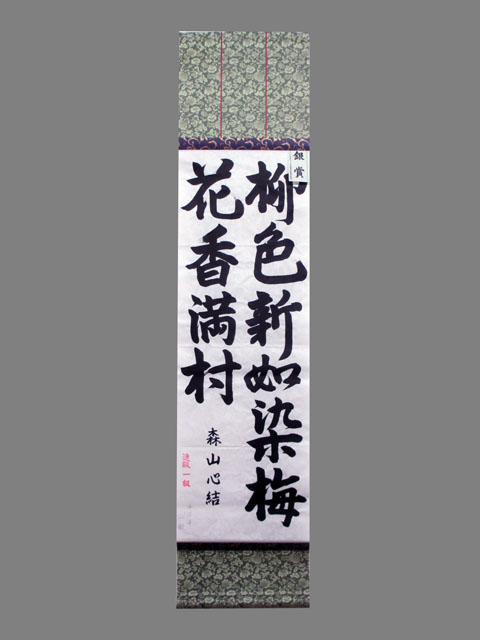 銀賞
柳色新如染梅
花香満村
森山心結
準段一級